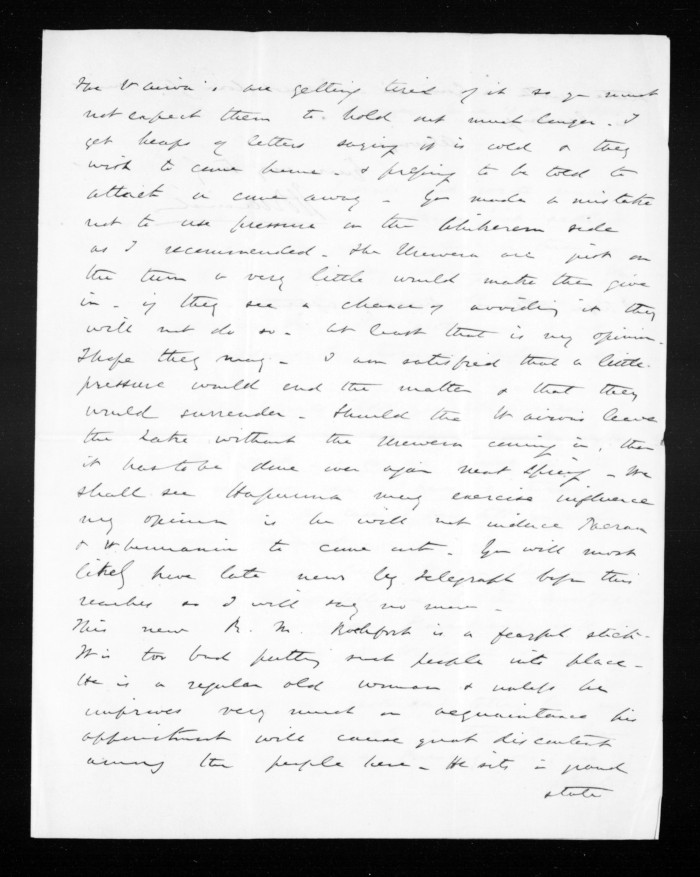 The Wairoa's are getting tired of it so you must
not expect them to hold out much longer. I
get heaps of letters saying it is cold & they
wish to come home - & pressing to be told to
attack or come away - You made a mistake
not to use pressure on the Whikerema side
as I recommended. The Urewera are just on
the turn & very little would make them give
in - if they see a chance of avoiding it they
will not do so - at least that is my opinion.
I hope they may - I am satisfied that a little
pressure would end the matter & that they
would surrender - Should the Wairoa's leave
the Lake without the Urewera coming in, then
it has to be done over again next Spring - We
shall see Hapurona may exercise influence
my opinion is he will not induce Paerau
& to come out - You will most
likely have late news by telegraph before this
reaches so I will say no more -
This new R. M. Rochfort is a fearful stick -
It is too bad putting such people into place -
He is a regular old woman & unless he
improves very much on acquaintance his
appointment will cause great discontent
among the people here - He sits in grand
state